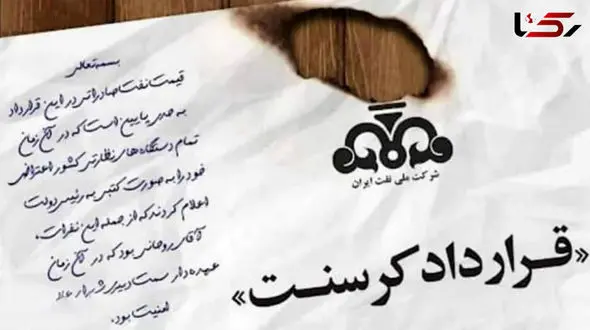 رکنا
بسمه‌تعالی
قیمت نفت صادراتی در این قرارداد
به حدی پایین است که در آن زمان
تمام دستگاه‌های نظارتی کشور اعتراض
خود را به صورت کتبی به رئیس دولت
اعلام کردند که از جمله این نفرات،
آقای روحانی بود که در آن زمان
عهده‌دار سمت دبیری شورای عالی
امنیت بود.
شرکت ملی نفت ایران
«قرارداد کرسنت»